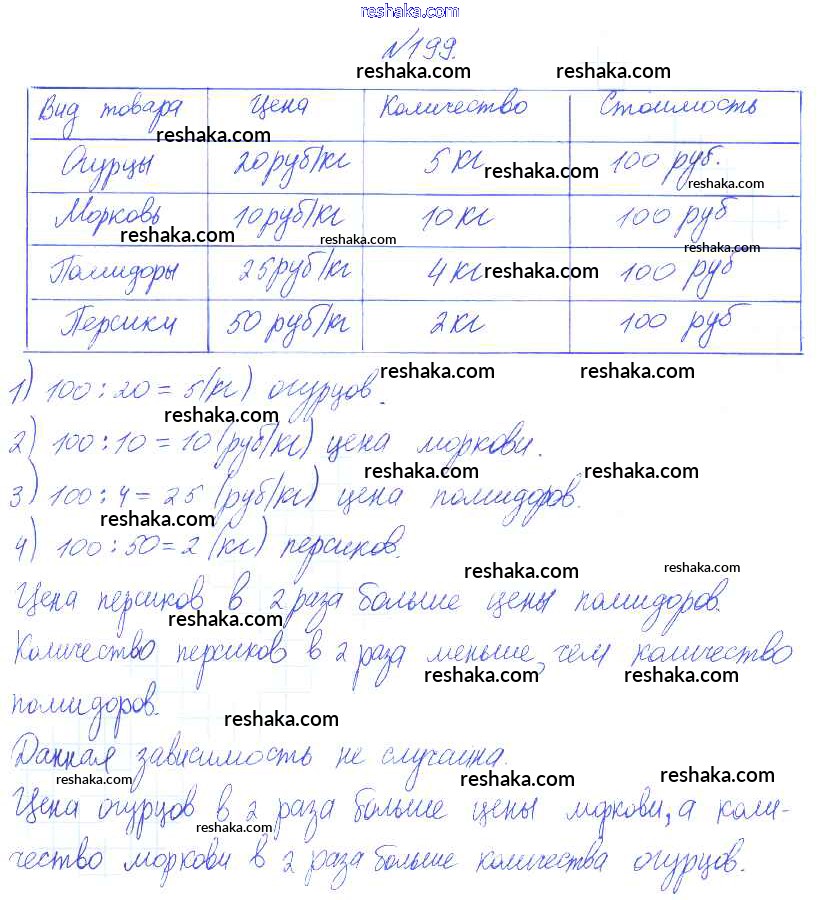 reshaka.com
№199.
reshaka.com reshaka.com
Вид товара Цена Количество Стоимость
reshaka.com
Огурцы 20 руб/кг 5 кг 100 руб.
reshaka.com
reshaka.com
Морковь 10 руб/кг 10 кг 100 руб
reshaka.com reshaka.com reshaka.com
Помидоры 25 руб/кг 4 кг 100 руб
reshaka.com reshaka.com
Персики 50 руб/кг 2 кг 100 руб
reshaka.com reshaka.com
1) 100 : 20 = 5 (кг) огурцов.
reshaka.com
2) 100 : 10 = 10 (руб/кг) цена моркови.
reshaka.com reshaka.com
3) 100 : 4 = 25 (руб/кг) цена помидоров.
reshaka.com
4) 100 : 50 = 2 (кг) персиков.
reshaka.com reshaka.com
Цена персиков в 2 раза больше цены помидоров.
reshaka.com
Количество персиков в 2 раза меньше, чем количество
reshaka.com reshaka.com
помидоров.
reshaka.com
Данная зависимость не случайна.
reshaka.com reshaka.com reshaka.com
Цена огурцов в 2 раза больше цены моркови, а коли-
reshaka.com
чество моркови в 2 раза больше количества огурцов.